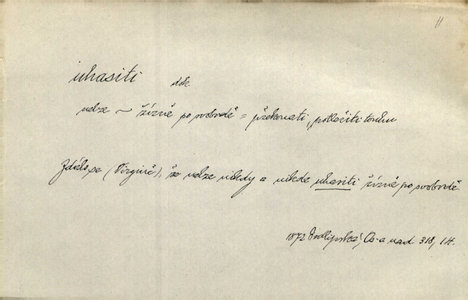 uhasiti dok
nelze ~ žízně po svobodě = překonati, potlačiti touhu
Zdálo se (Virgině), že nelze nikdy a nikde uhasiti žízně po svobodě.
1872 Podlipská, 318, 1H.